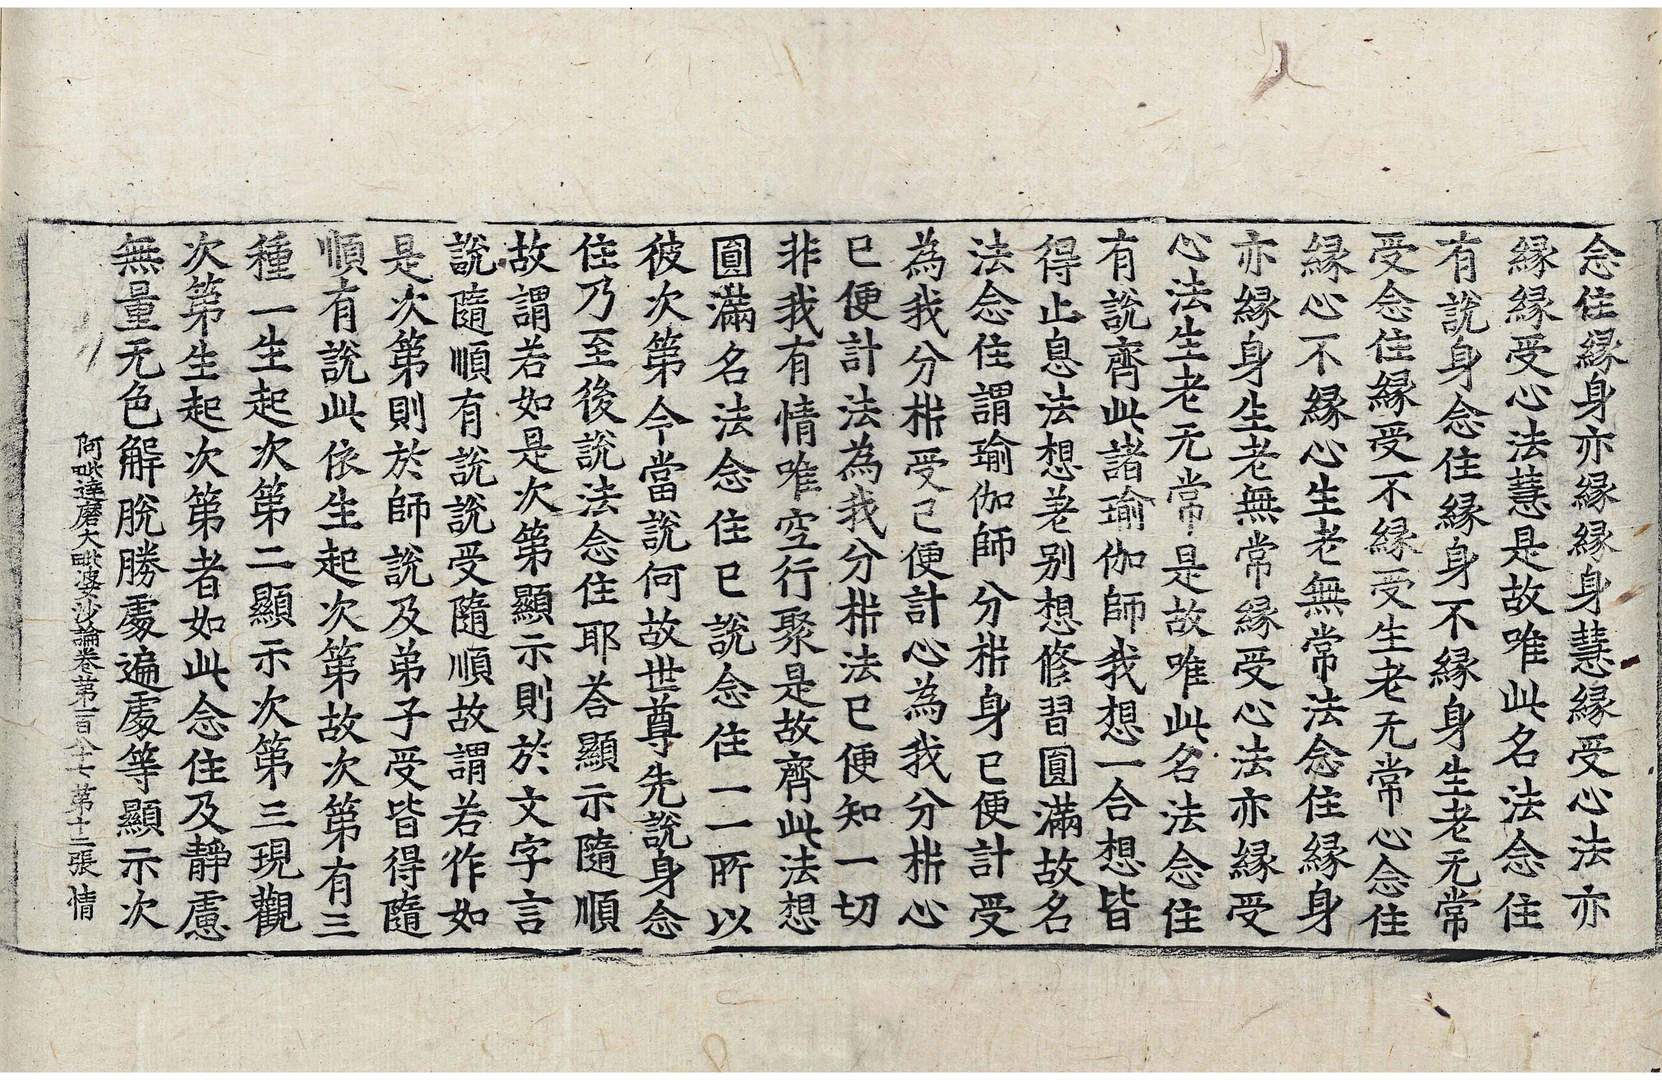 念住縁身亦縁縁身慧縁受心法亦
縁縁受心法慧是故唯此名法念住
有說身念住縁身不縁身生老无常
受念住縁受不縁受生老无常心念住
縁心不縁心生老無常法念住縁身
亦縁身生老無常縁受心法亦縁受
心法生老无常是故唯此名法念住
有說齊此諸瑜伽師我想一合想皆
得止息法想差別想修習圓滿故名
法念住謂瑜伽師分枿身已便計受
為我分枿受已便計心為我分枿心
已便計法為我分枿法已便知一切
非我有情唯空行聚是故齊此法想
圓滿名法念住已說念住一一所以
彼次第今當說何故世尊先說身念
住乃至後說法念住耶荅顯示隨順
故謂若如是次第顯示則於文字言
說隨順有說說受隨順故謂若作如
是次第則於師說及弟子受皆得隨
順有說此依生起次第故次第有三
種一生起次第二顯示次第三現觀
次第生起次第者如此念住及靜慮
無量无色解脫勝處遍處等顯示次
阿毗達磨大毗婆沙論卷第一百八十七 第十二張 情